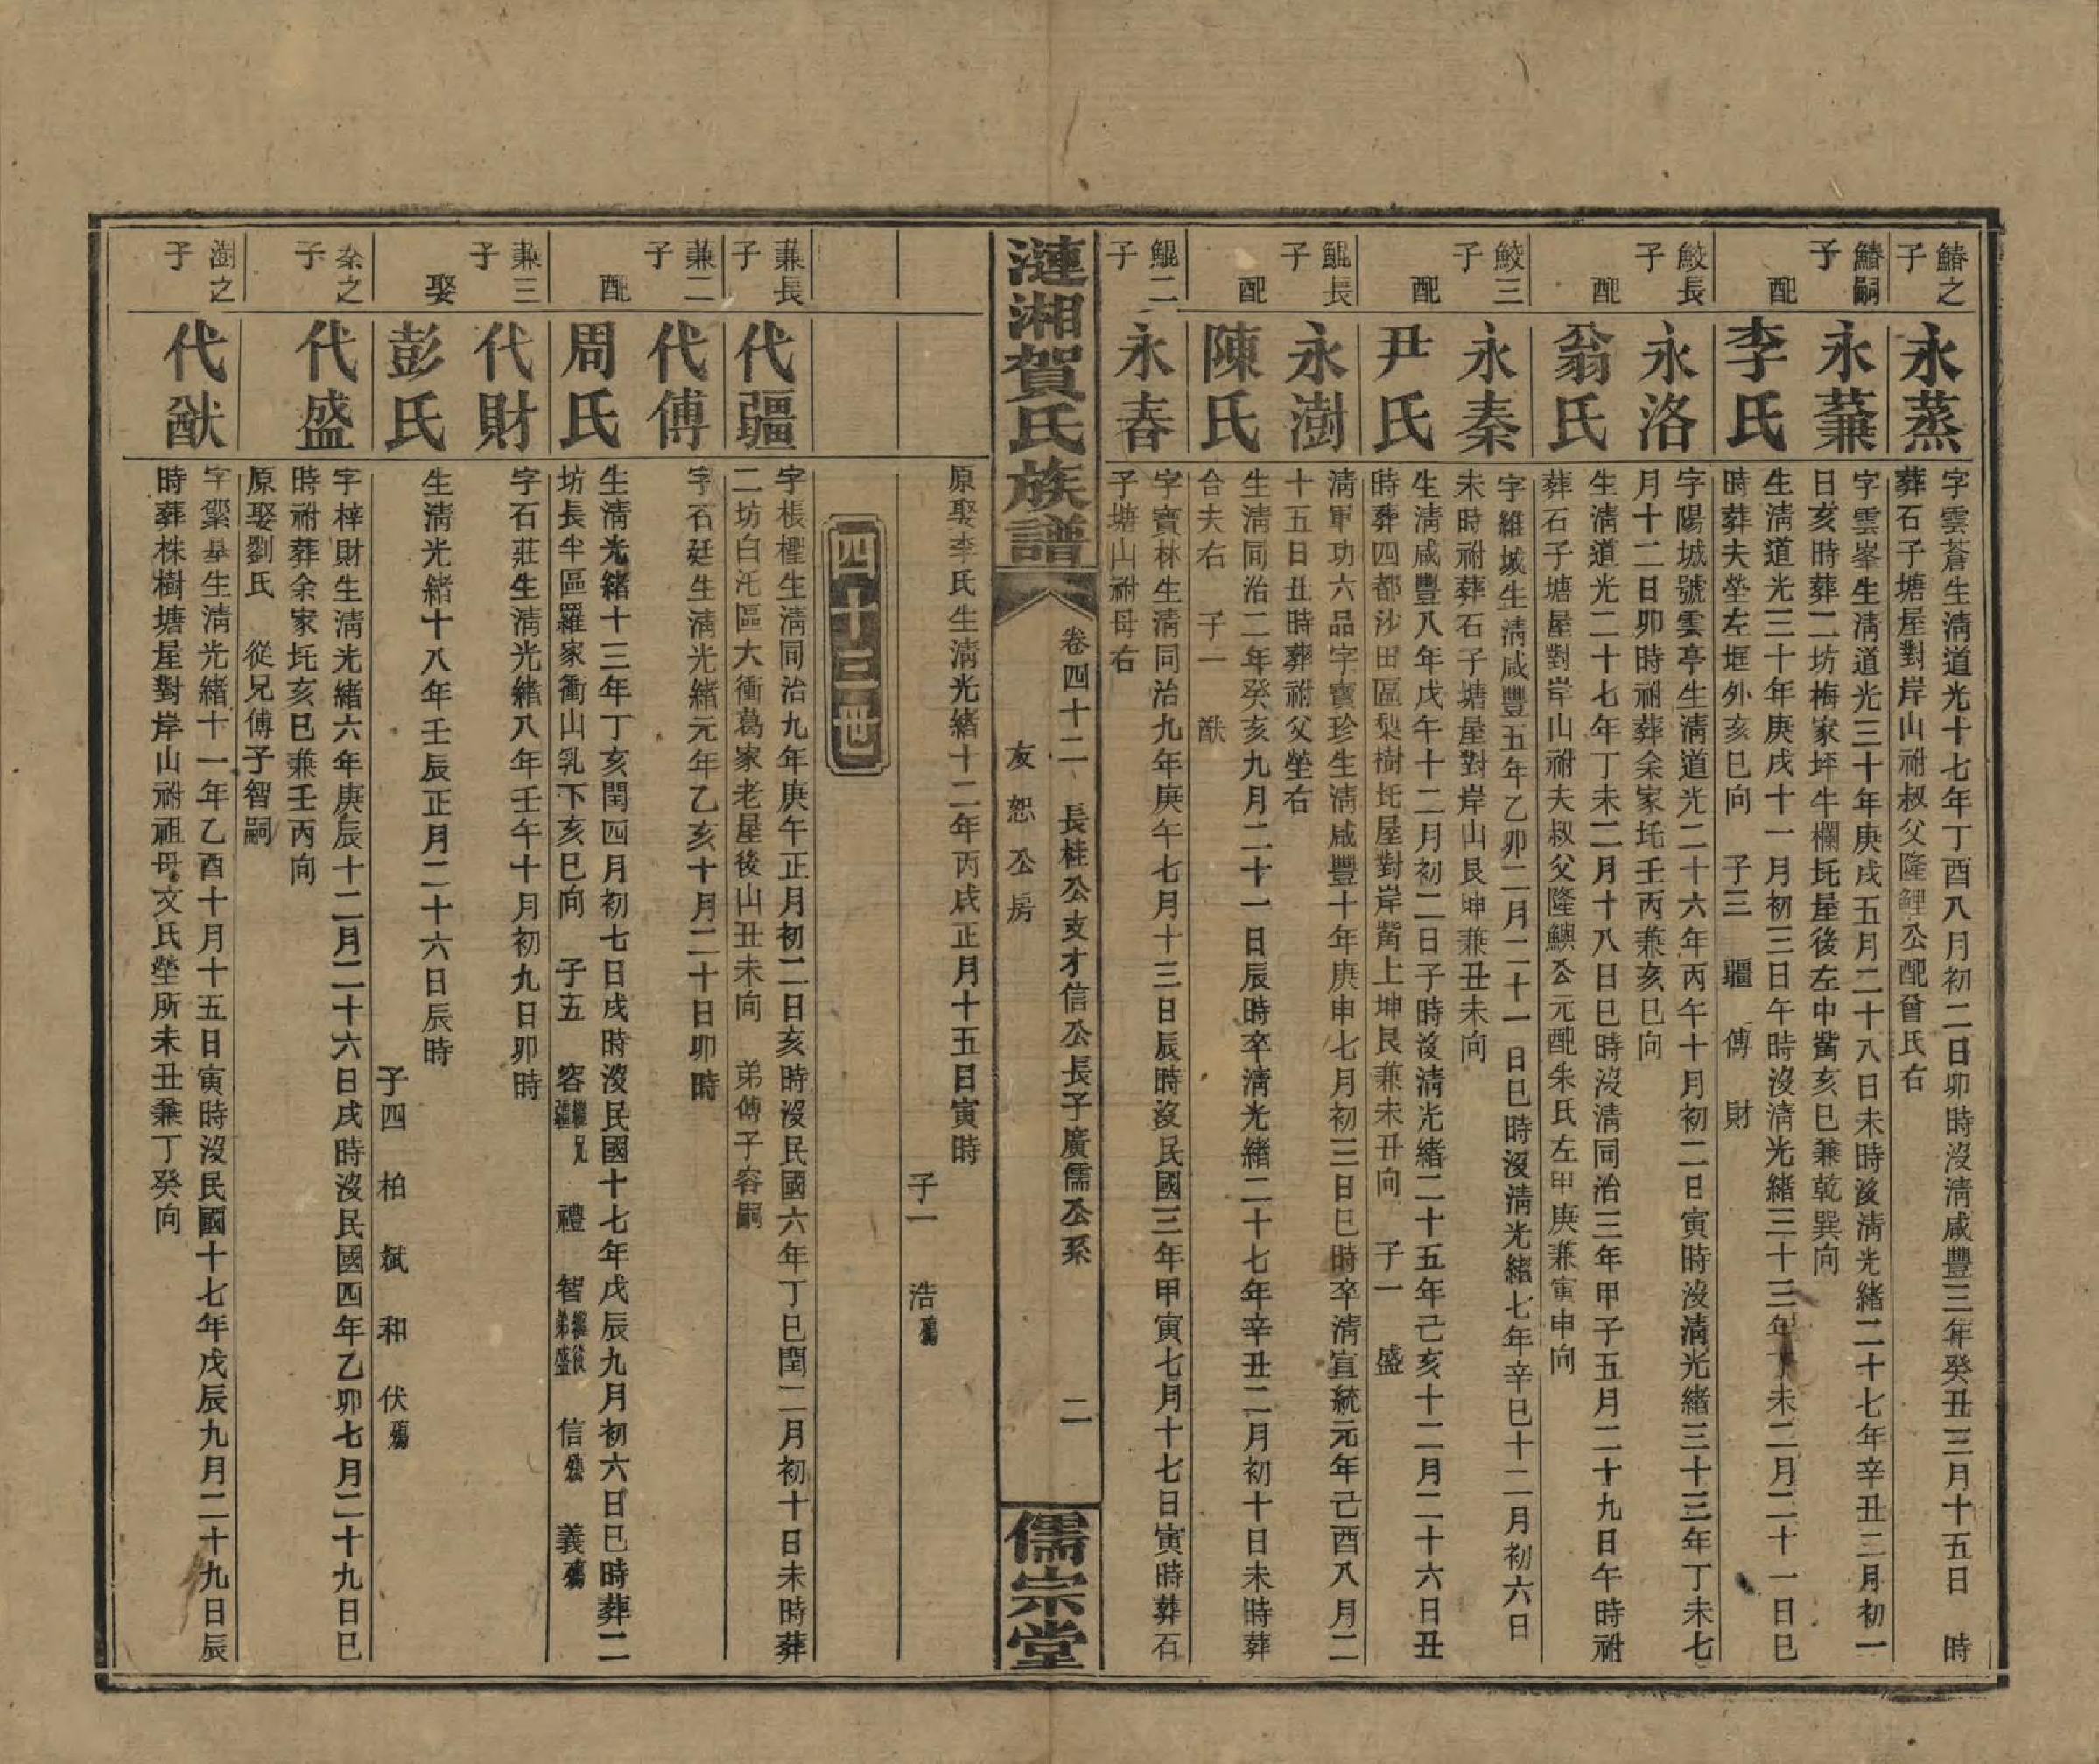 鰆之子
永蒸
字雲蒼生淸道光十七年丁酉八月初二日卯時沒淸咸豐三年癸丑三月十五日　時
葬石子塘屋對岸山祔叔父隆鯉公配曾氏右
鰆嗣子
永蒹
字雲峯生淸道光三十年庚戌五月二十八日未時沒淸光緒二十七年辛丑三月初一
日亥時葬二坊梅家坪牛欄圫屋後左中嘴亥巳兼乾巽向
配
李氏
生淸道光三十年庚戌十一月初三日午時沒淸光緒三十三年丁未二月二十一日巳
時葬夫塋左堰外亥巳向　子三　疆　傅　財
鮫長子
永洛
字陽城號雲亭生淸道光二十六年丙午十月初二日寅時沒淸光緒三十三年丁未七
月十二日卯時祔葬余家圫壬丙兼亥巳向
配
翁氏
生淸道光二十七年丁未二月十八日巳時沒淸同治三年甲子五月二十九日午時祔
葬石子塘屋對岸山祔夫叔父隆鱮公元配朱氏左甲庚兼寅申向
鮫三子
永秦
字維城生淸咸豐五年乙卯二月二十一日巳時沒淸光緒七年辛巳十二月初六日
未時祔葬石子塘屋對岸山艮坤兼丑未向
配
尹氏
生淸咸豐八年戊午十二月初二日子時沒淸光緒二十五年己亥十二月二十六日丑
時葬四都沙田區梨樹圫屋對岸嘴上坤艮兼未丑向　子一　盛
鯤長子
永澍
淸軍功六品字寶珍生淸咸豐十年庚申七月初三日巳時卒淸宣統元年己酉八月二
十五日丑時葬祔父塋右
配
陳氏
生淸同治二年癸亥九月二十一日辰時卒淸光緒二十七年辛丑二月初十日未時葬
合夫右　子一　猷
鯤二子
永春
字寶林生淸同治九年庚午七月十三日辰時沒民國三年甲寅七月十七日寅時葬石
子塘山祔母右
漣湘賀氏族譜
卷四十二　長桂公支才信公長子廣儒公系　二
友恕公房
儒宗堂
原娶李氏生淸光緒十二年丙戌正月十五日寅時
子一　浩殤
四十三世
蒹長子
代疆
字棖檉生淸同治九年庚午正月初二日亥時沒民國六年丁巳閏二月初十日未時葬
二坊白沱區大衝葛家老屋後山丑未向　弟傅子容嗣
蒹二子
代傅
字石廷生淸光緒元年乙亥十月二十日卯時
配
周氏
生淸光緒十三年丁亥閏四月初七日戌時沒民國十七年戊辰九月初六日巳時葬二
坊長牛區羅家衝山乳下亥巳向　子五　容繼兄疆　禮　智繼後弟盛　信殤　義殤
蒹三子
代財
字石莊生淸光緒八年壬午十月初九日卯時
娶
彭氏
生淸光緒十八年壬辰正月二十六日辰時
子四　柏　斌　和　伏殤
秦之子
代盛
字梓財生淸光緒六年庚辰十二月二十六日戌時沒民國四年乙卯七月二十九日巳
時祔葬余家圫亥巳兼壬丙向
原娶劉氏　從兄傅子智嗣
澍之子
代猷
字縏臯生淸光緒十一年乙酉十月十五日寅時沒民國十七年戊辰九月二十九日辰
時葬株樹塘屋對岸山祔祖母文氏塋所未丑兼丁癸向